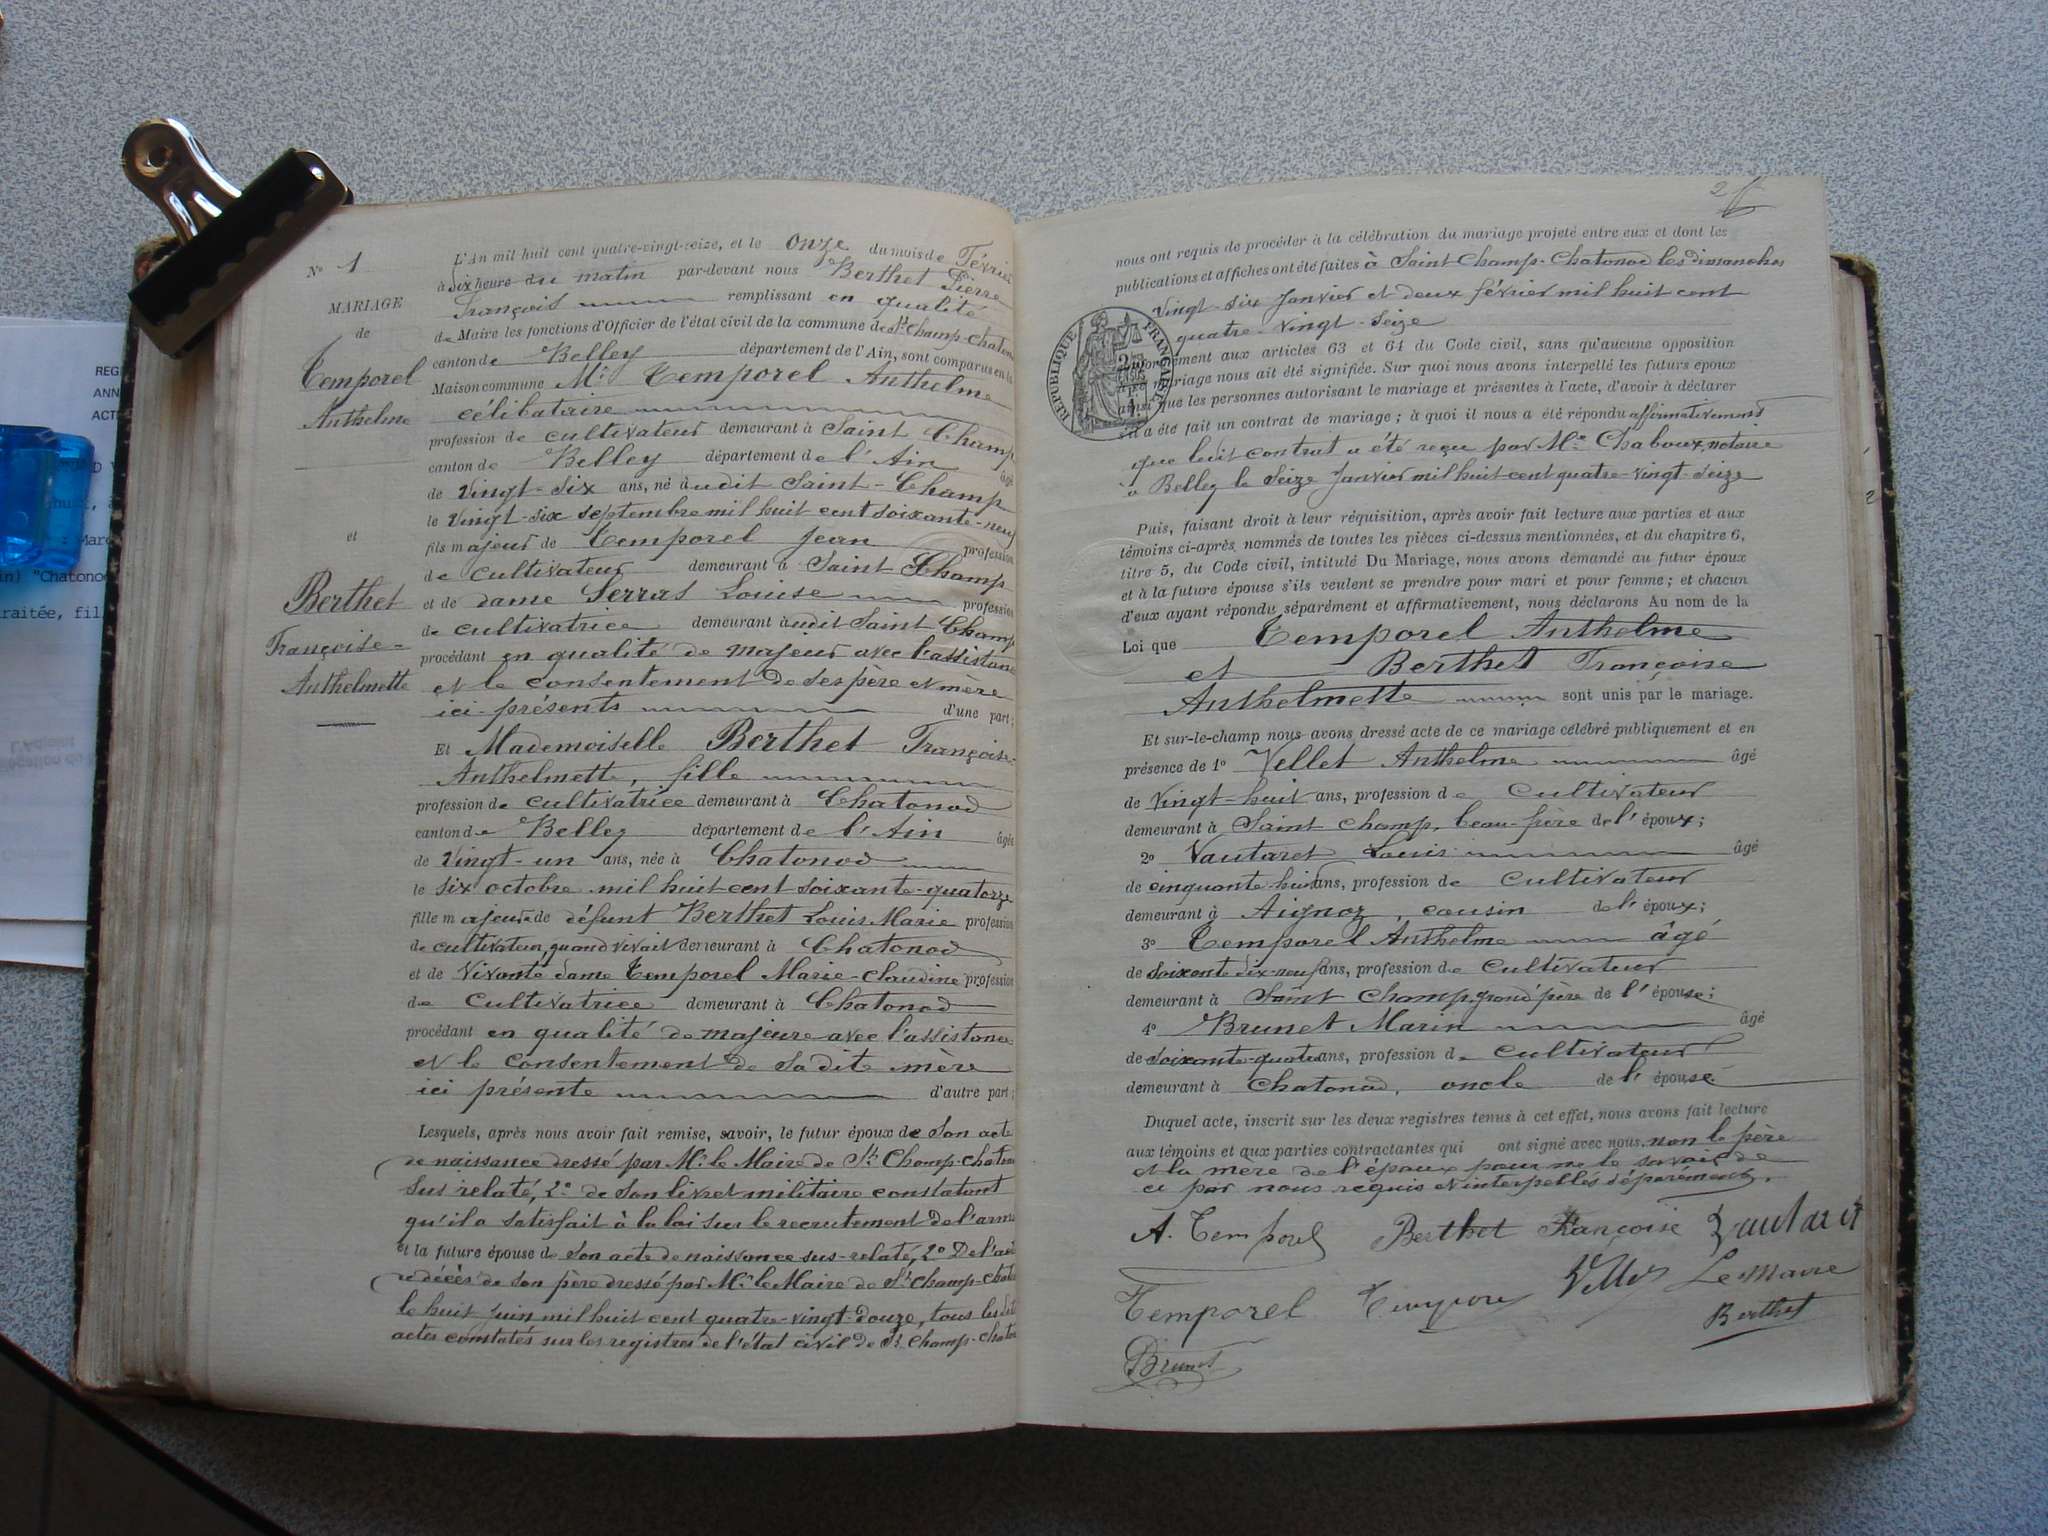 REG
ANN
ACT
(in) "Chatonod
traitée, fil
Nº 1
MARIAGE
de
Temporel
Anthelme
et
Berthet
Françoise-
Anthelmette
L'An mil huit cent quatre-vingt-seize, et le onze du mois de Février
à dix heure du matin par-devant nous Berthet Pierre
François remplissant en qualité
de Maire les fonctions d'Officier de l'état civil de la commune de St Champ-Chatonod
canton de Belley département de l'Ain, sont comparus en la
Maison commune Mr. Temporel Anthelme
célibataire
profession de cultivateur demeurant à Saint Champ
canton de Belley département de l'Ain âgé
de vingt-six ans, né audit Saint-Champ
le vingt-six septembre mil huit cent soixante-neuf
fils majeur de Temporel Jean profession
de cultivateur demeurant à Saint Champ
et de dame Serras Louise profession
de cultivatrice demeurant audit Saint Champ
procédant en qualité de majeur avec l'assistance
et le consentement de ses père et mère
ici présents d'une part;
Et Mademoiselle Berthet Françoise-
Anthelmette, fille
profession de cultivatrice demeurant à Chatonod
canton de Belley département de l'Ain âgée
de vingt-un ans, née à Chatonod
le six octobre mil huit cent soixante-quatorze
fille majeure de défunt Berthet Louis Marie profession
de cultivateur, quand vivait demeurant à Chatonod
et de vivante dame Temporel Marie-Claudine profession
de cultivatrice demeurant à Chatonod
procédant en qualité de majeure avec l'assistance
et le consentement de sa dite mère
ici présente d'autre part;
Lesquels, après nous avoir fait remise, savoir, le futur époux de son acte
de naissance dressé par Mr le Maire de St Champ-Chatonod
sus relaté, 2º de son livret militaire constatant
qu'il a satisfait à la loi sur le recrutement de l'armée
et la future épouse de son acte de naissance sus-relaté, 2º De l'acte
de décès de son père dressé par Mr le Maire de St Champ-Chatonod
le huit juin mil huit cent quatre-vingt-douze, tous les dits
actes constatés sur les registres de l'état civil de St Champ-Chatonod
2
nous ont requis de procéder à la célébration du mariage projeté entre eux et dont les
publications et affiches ont été faites à Saint Champ-Chatonod les dimanches
vingt-six Janvier et deux février mil huit cent
quatre-vingt-seize
RÉPUBLIQUE FRANÇAISE
conformément aux articles 63 et 64 du Code civil, sans qu'aucune opposition
au mariage nous ait été signifiée. Sur quoi nous avons interpellé les futurs époux
ainsi que les personnes autorisant le mariage et présentes à l'acte, d'avoir à déclarer
s'il a été fait un contrat de mariage; à quoi il nous a été répondu affirmativement
que ledit contrat a été reçu par Me Chaboux, notaire
à Belley le seize Janvier mil huit cent quatre-vingt-seize
Puis, faisant droit à leur réquisition, après avoir fait lecture aux parties et aux
témoins ci-après nommés de toutes les pièces ci-dessus mentionnées, et du chapitre 6,
titre 5, du Code civil, intitulé Du Mariage, nous avons demandé au futur époux
et à la future épouse s'ils veulent se prendre pour mari et pour femme; et chacun
d'eux ayant répondu séparément et affirmativement, nous déclarons Au nom de la
Loi que Temporel Anthelme
et Berthet Françoise
Anthelmette sont unis par le mariage.
Et sur-le-champ nous avons dressé acte de ce mariage célébré publiquement et en
présence de 1º Vellet Anthelme âgé
de vingt-huit ans, profession de cultivateur
demeurant à Saint Champ, beau-frère de l'époux;
2º Vautaret Louis âgé
de cinquante-huit ans, profession de cultivateur
demeurant à Aignoz, cousin de l'époux;
3º Temporel Anthelme âgé
de soixante dix-neuf ans, profession de cultivateur
demeurant à Saint Champ, grand père de l'épouse;
4º Brunet Marin âgé
de soixante-quatre ans, profession de cultivateur
demeurant à Chatonod, oncle de l'épouse.
Duquel acte, inscrit sur les deux registres tenus à cet effet, nous avons fait lecture
aux témoins et aux parties contractantes qui ont signé avec nous, non le père
et la mère de l'époux pour ne le savoir de
ce par nous requis et interpellés séparément.
A. Temporel Berthet Françoise Vautaret
Temporel Vellet Le Maire
Berthet
Brunet